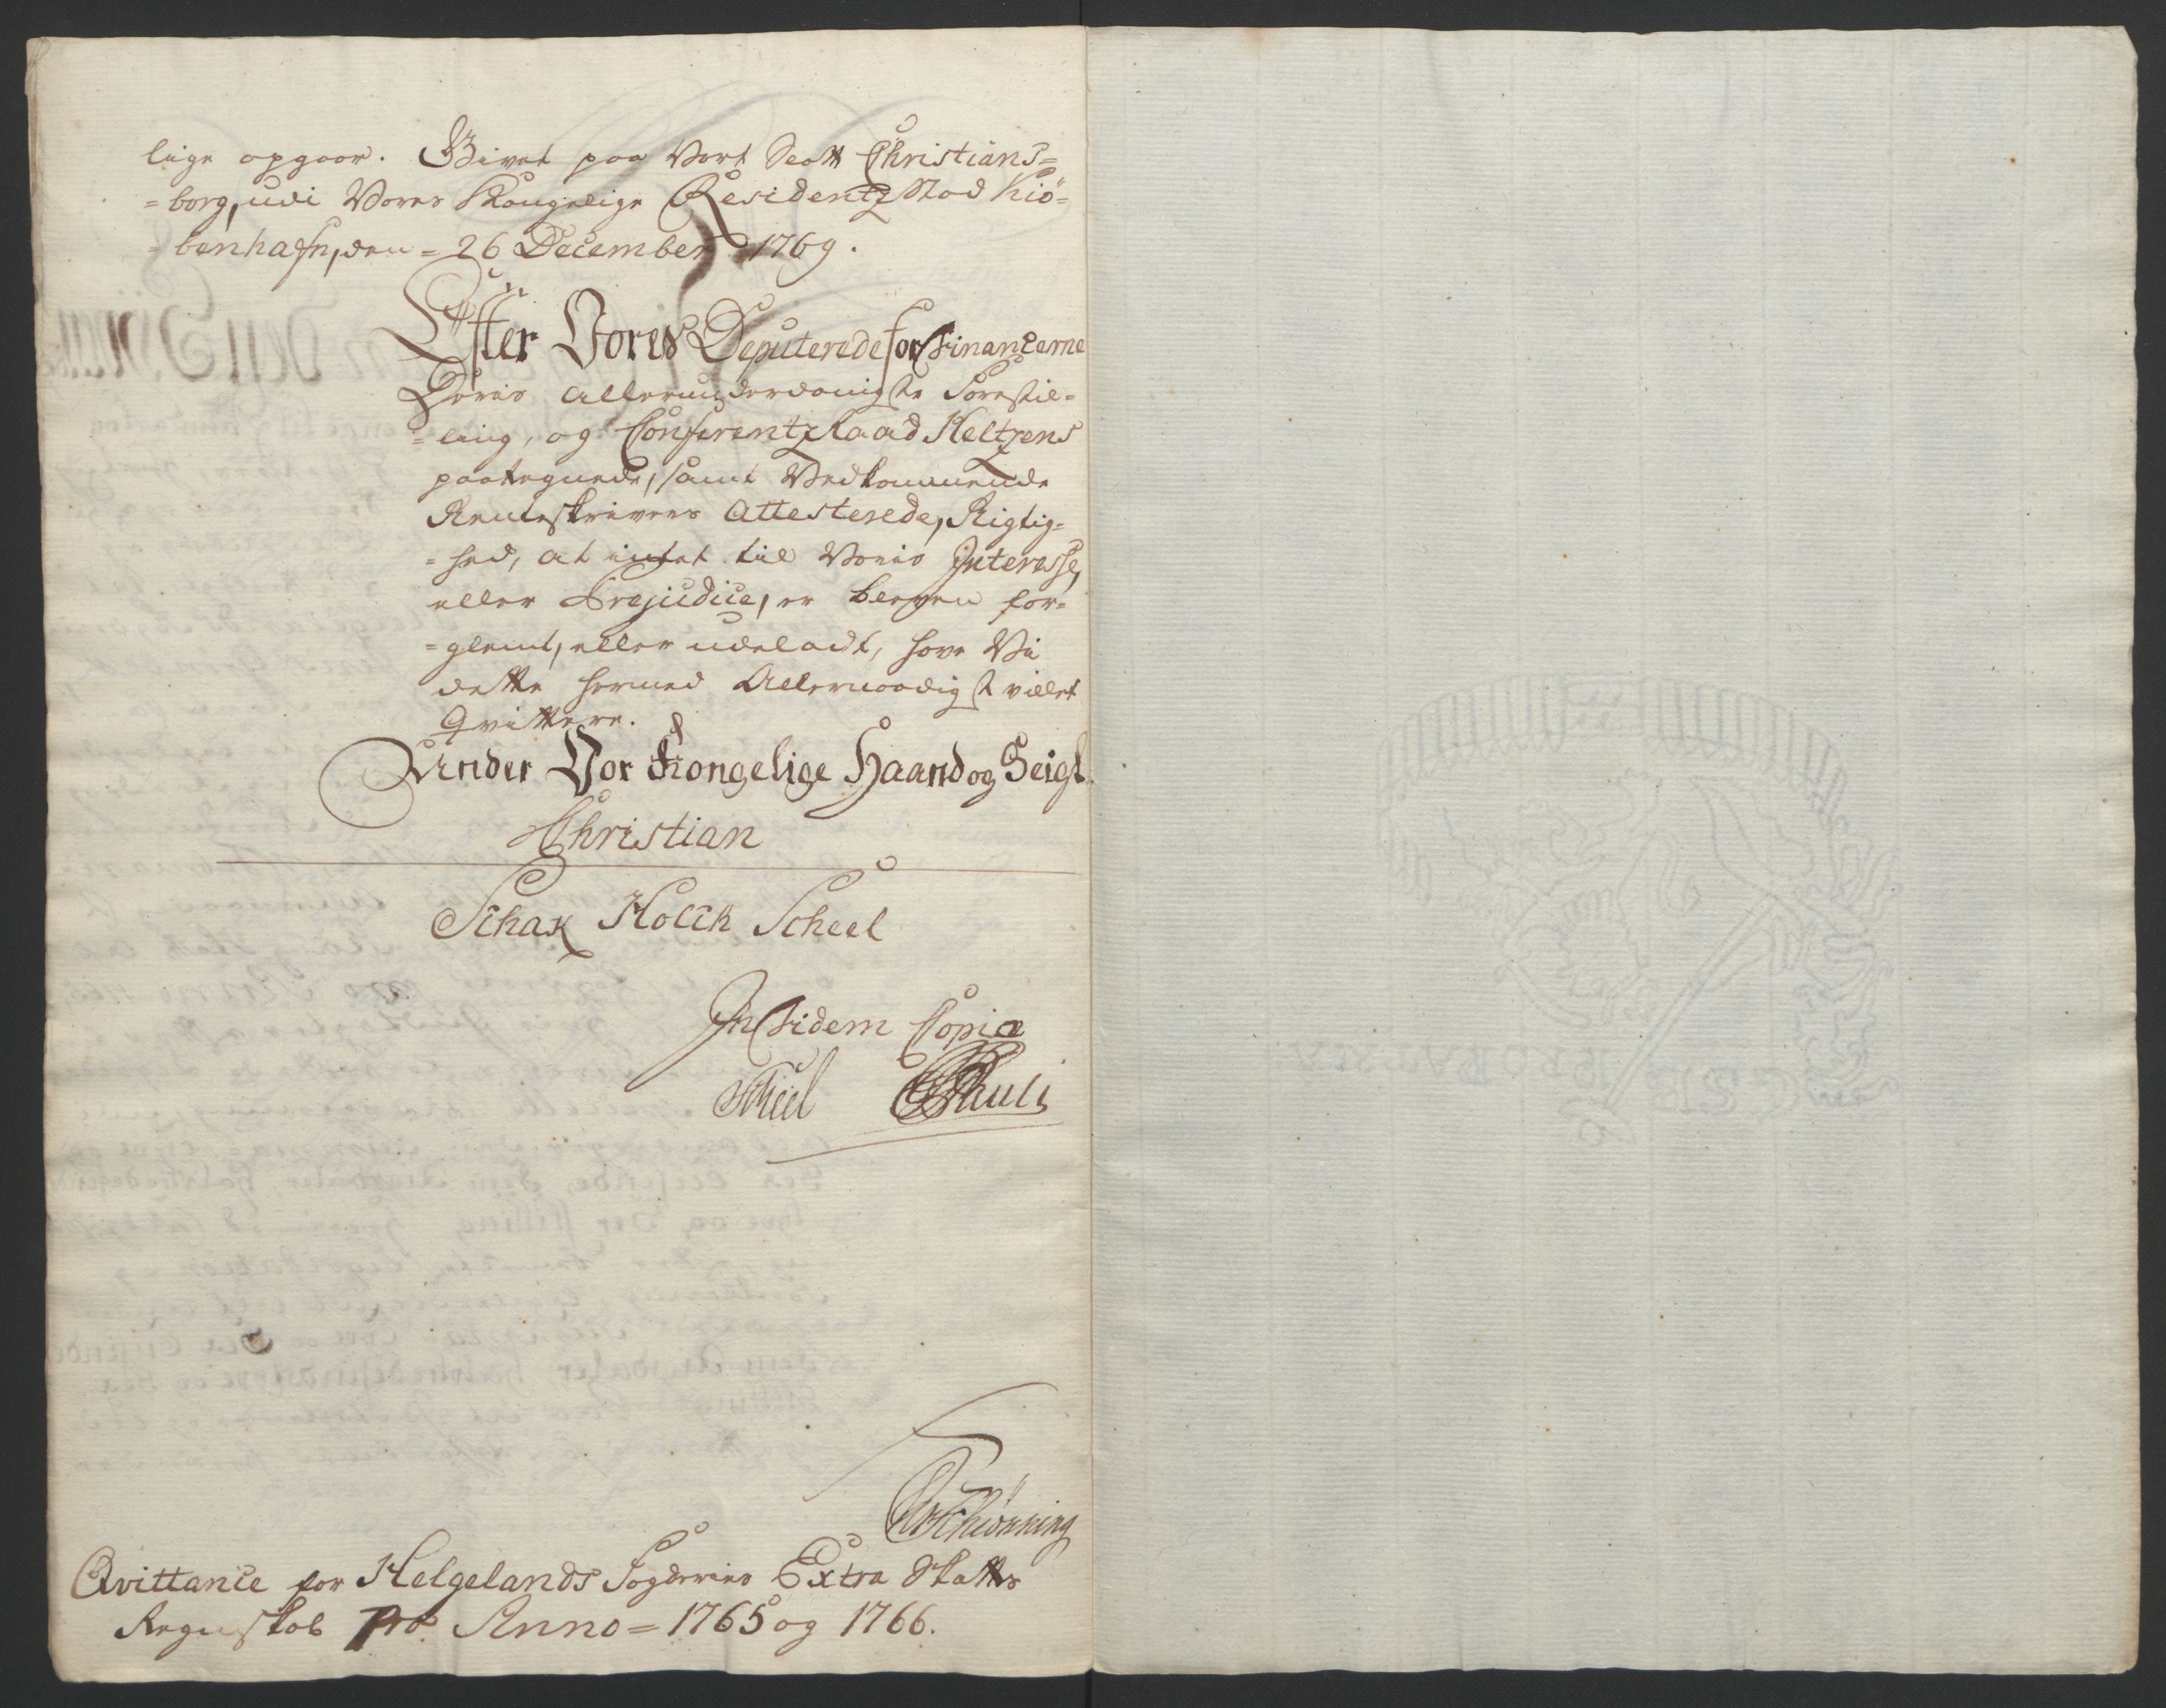 lige opgaar. Givet paa Vort Slott Christians=
=borg, udi Vores Kongelige Residentz Stad Kiö=
=benhafn, den = 26 December 1769.
Efter Vores Deputerede for Financerne
Deres Allerunderdanigste Forestil=
=ling, og Conferentz Raad Heltzens
paategnede, samt Vedkommende
Renteskrivers Attesterede, Rigtig=
=hed, at intet til Voris Interesse,
eller Prejudice, er bleven for=
=glemt, eller udeladt, have Vi
dette hermed Allernaadigst villet
Qvittere.
Under Vor Kongelige Haand og Seigl.
Christian
Schak Holck Scheel
In Fidem Copiæ
Scheel Pauli
Schiönning
Qvittance for Helgelands Fogderies Extra Skatts
Regnskab pro Anno = 1765 og 1766.
PRO PATRIA